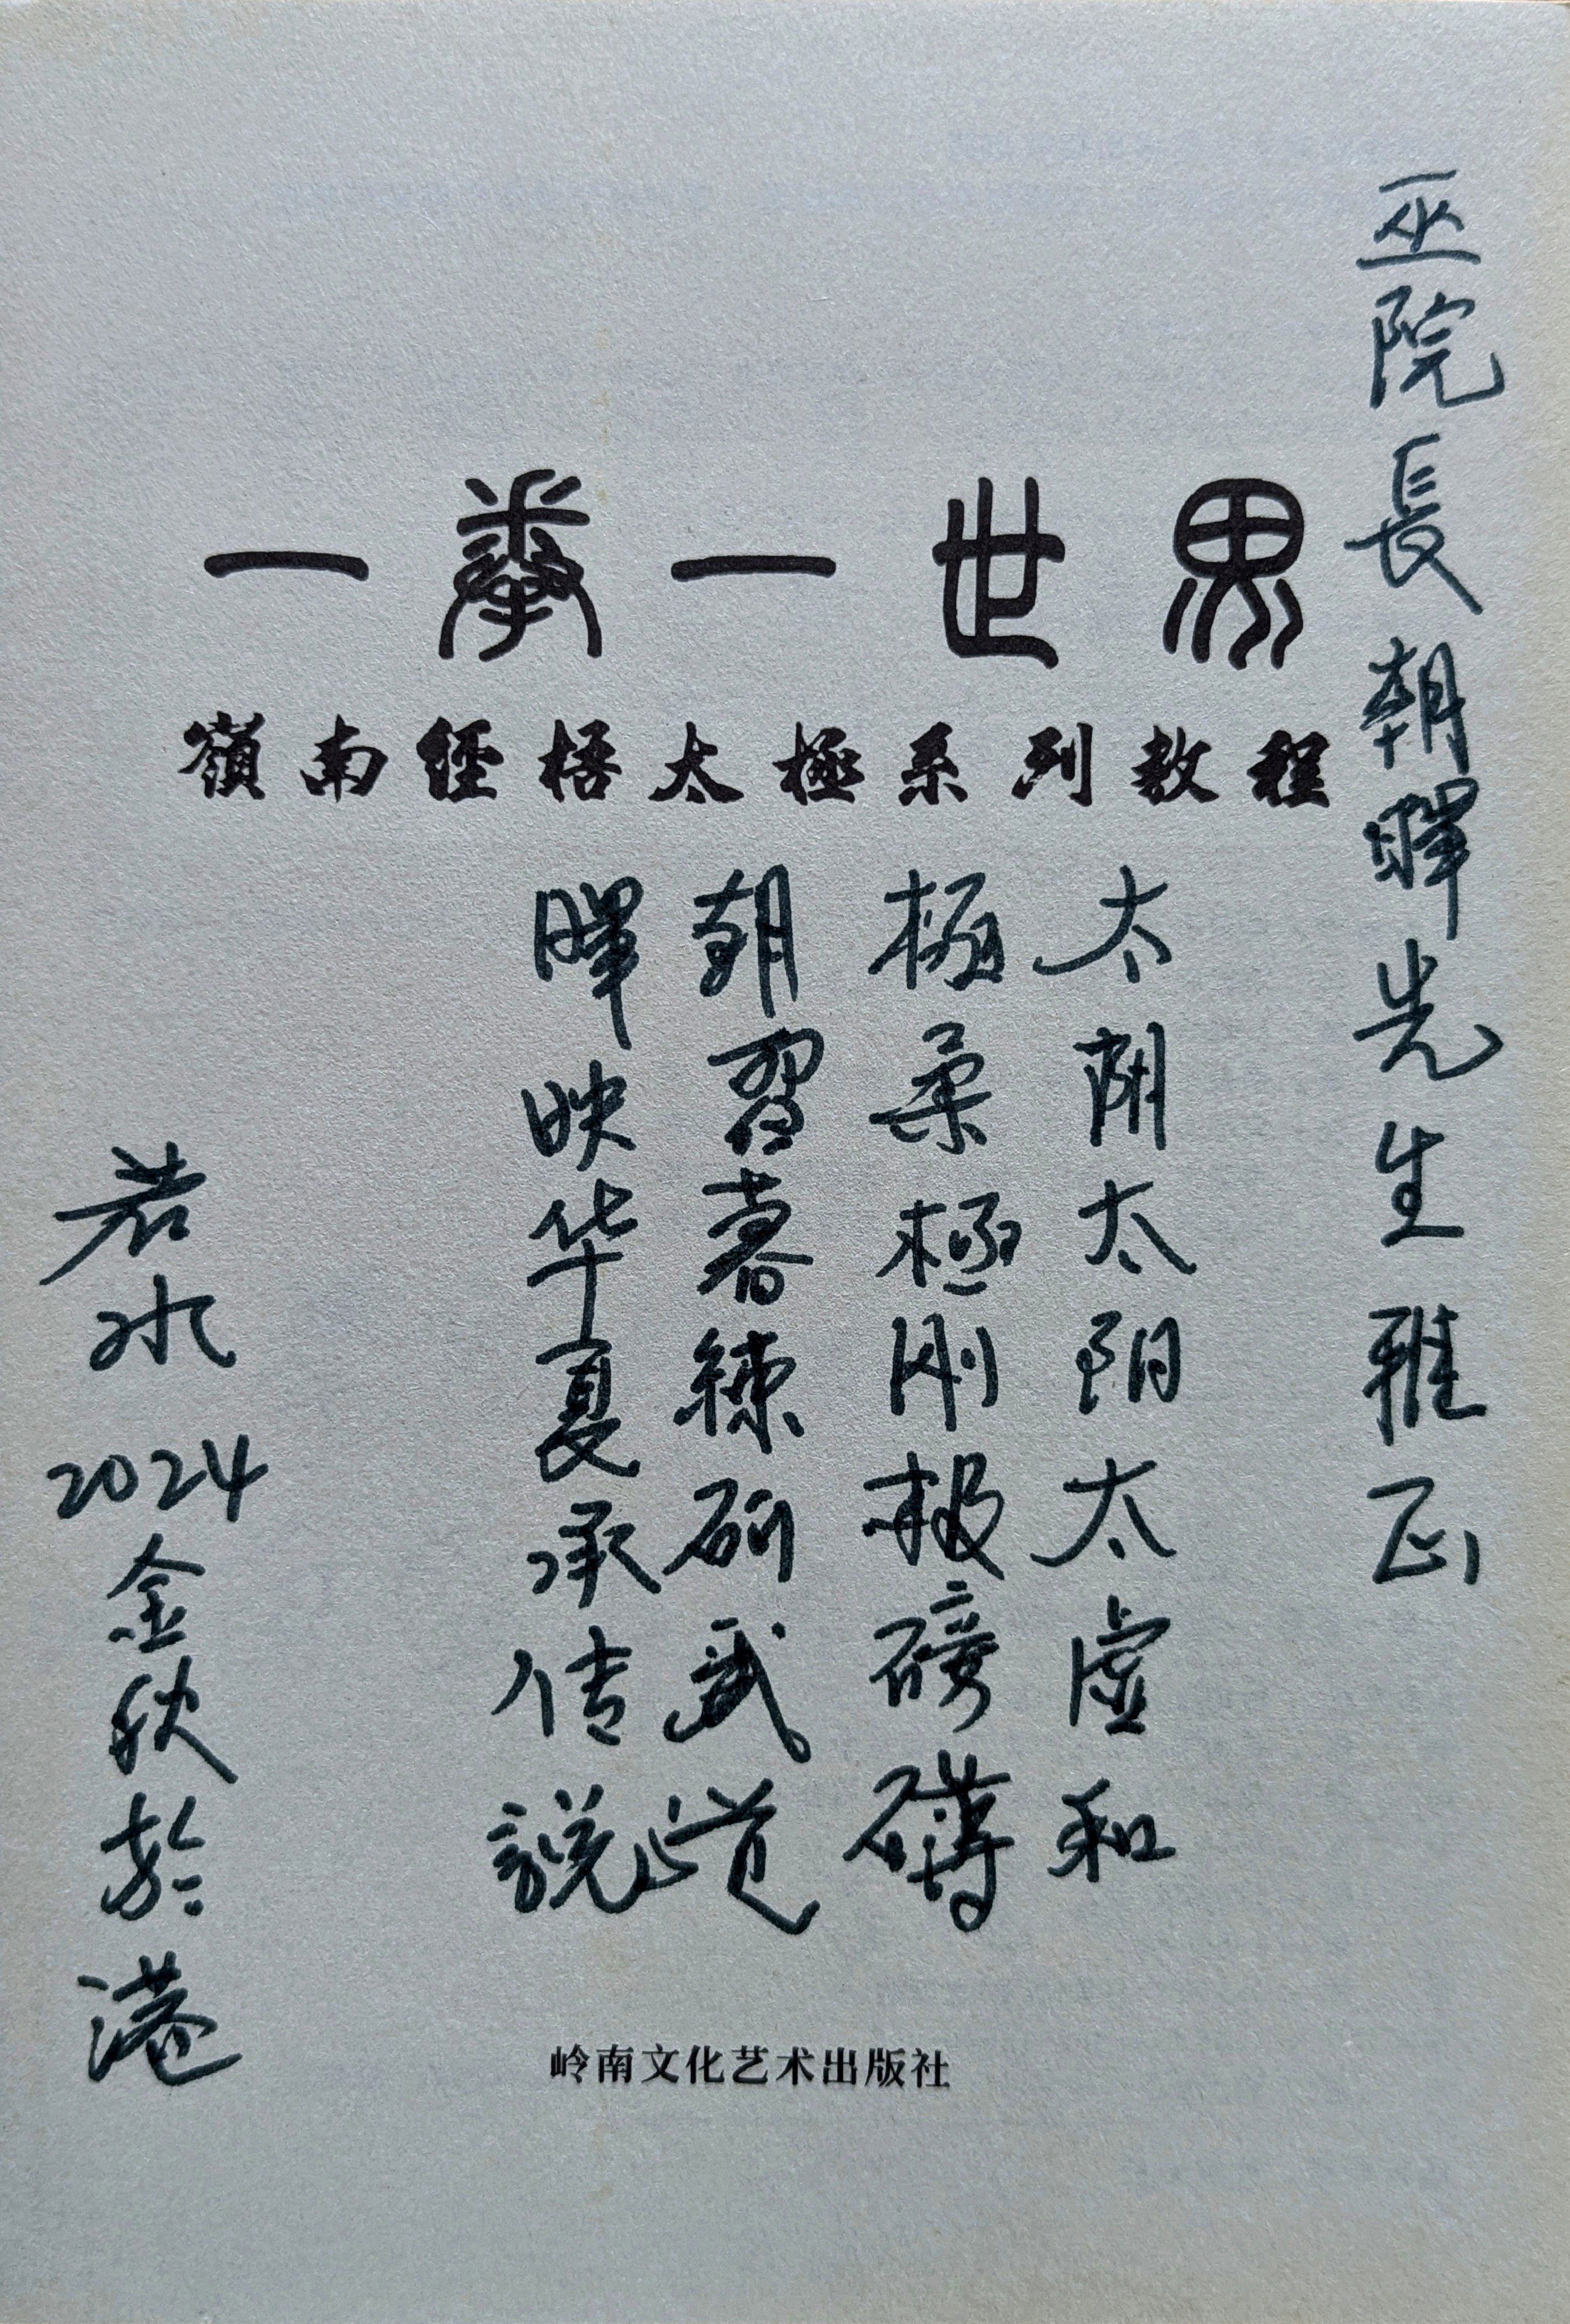 一拳一世界
嶺南經梧太極系列教程
巫院長朝暉先生雅正
太陰太陽太虛和
極柔極剛极磅礴
朝習暮練研武道
暉映华夏承传說
若水
2024金秋於港
岭南文化艺术出版社